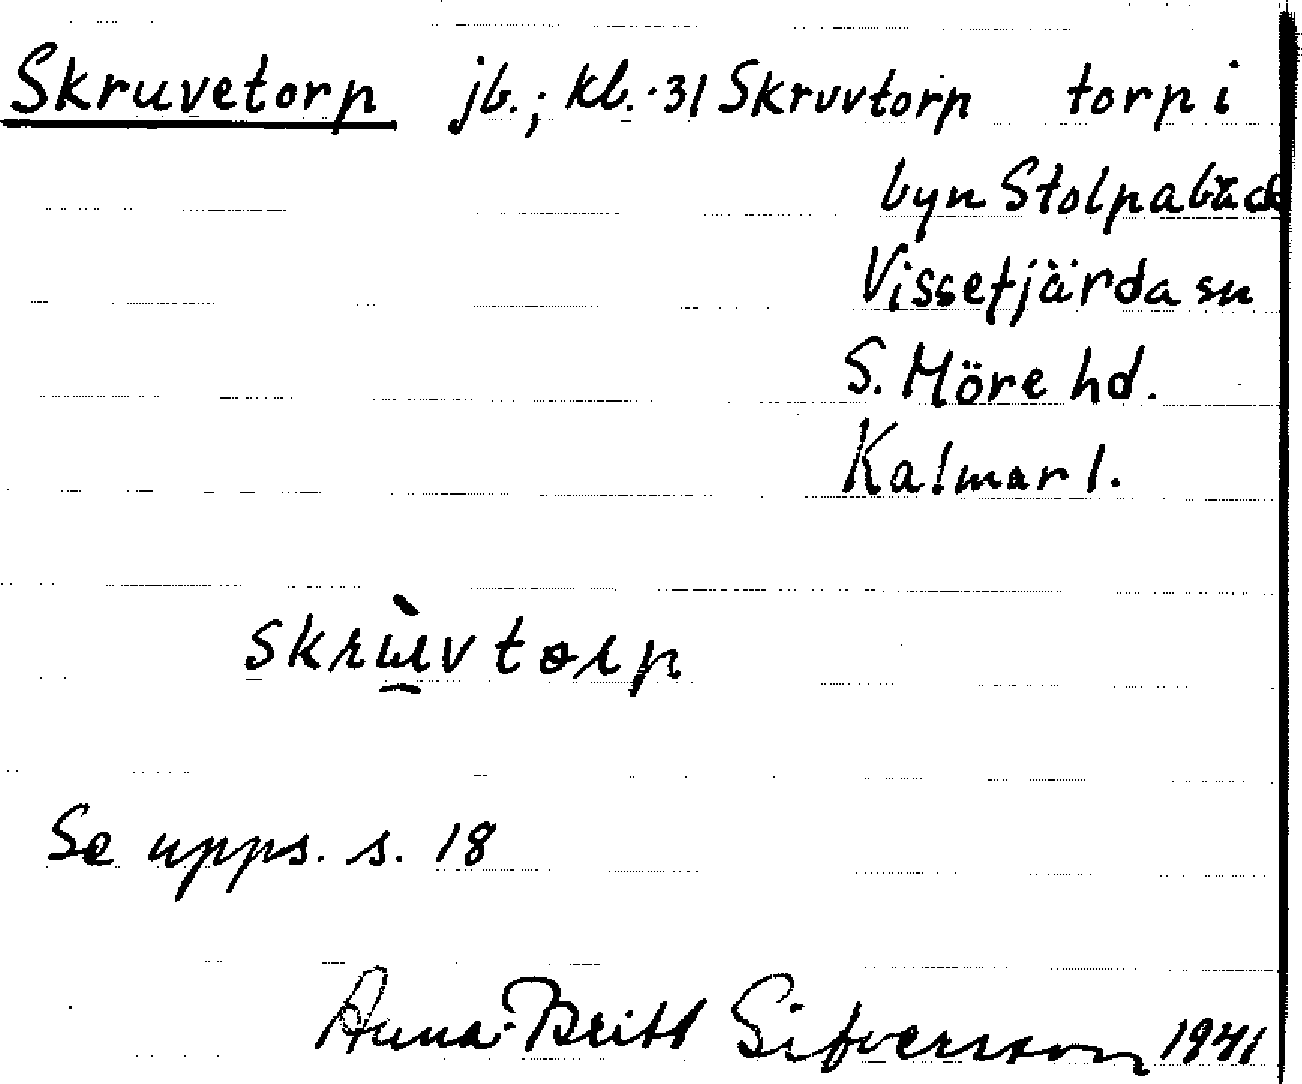 Skruvetorp jb.; kb. -31 Skruvtorp torp i
byn Stolpabäck
Vissefjärda sn
S. Möre hd.
Kalmar l.
skrùvtorp
Se upps. s. 18
Anna-Britt Sifversson 1941